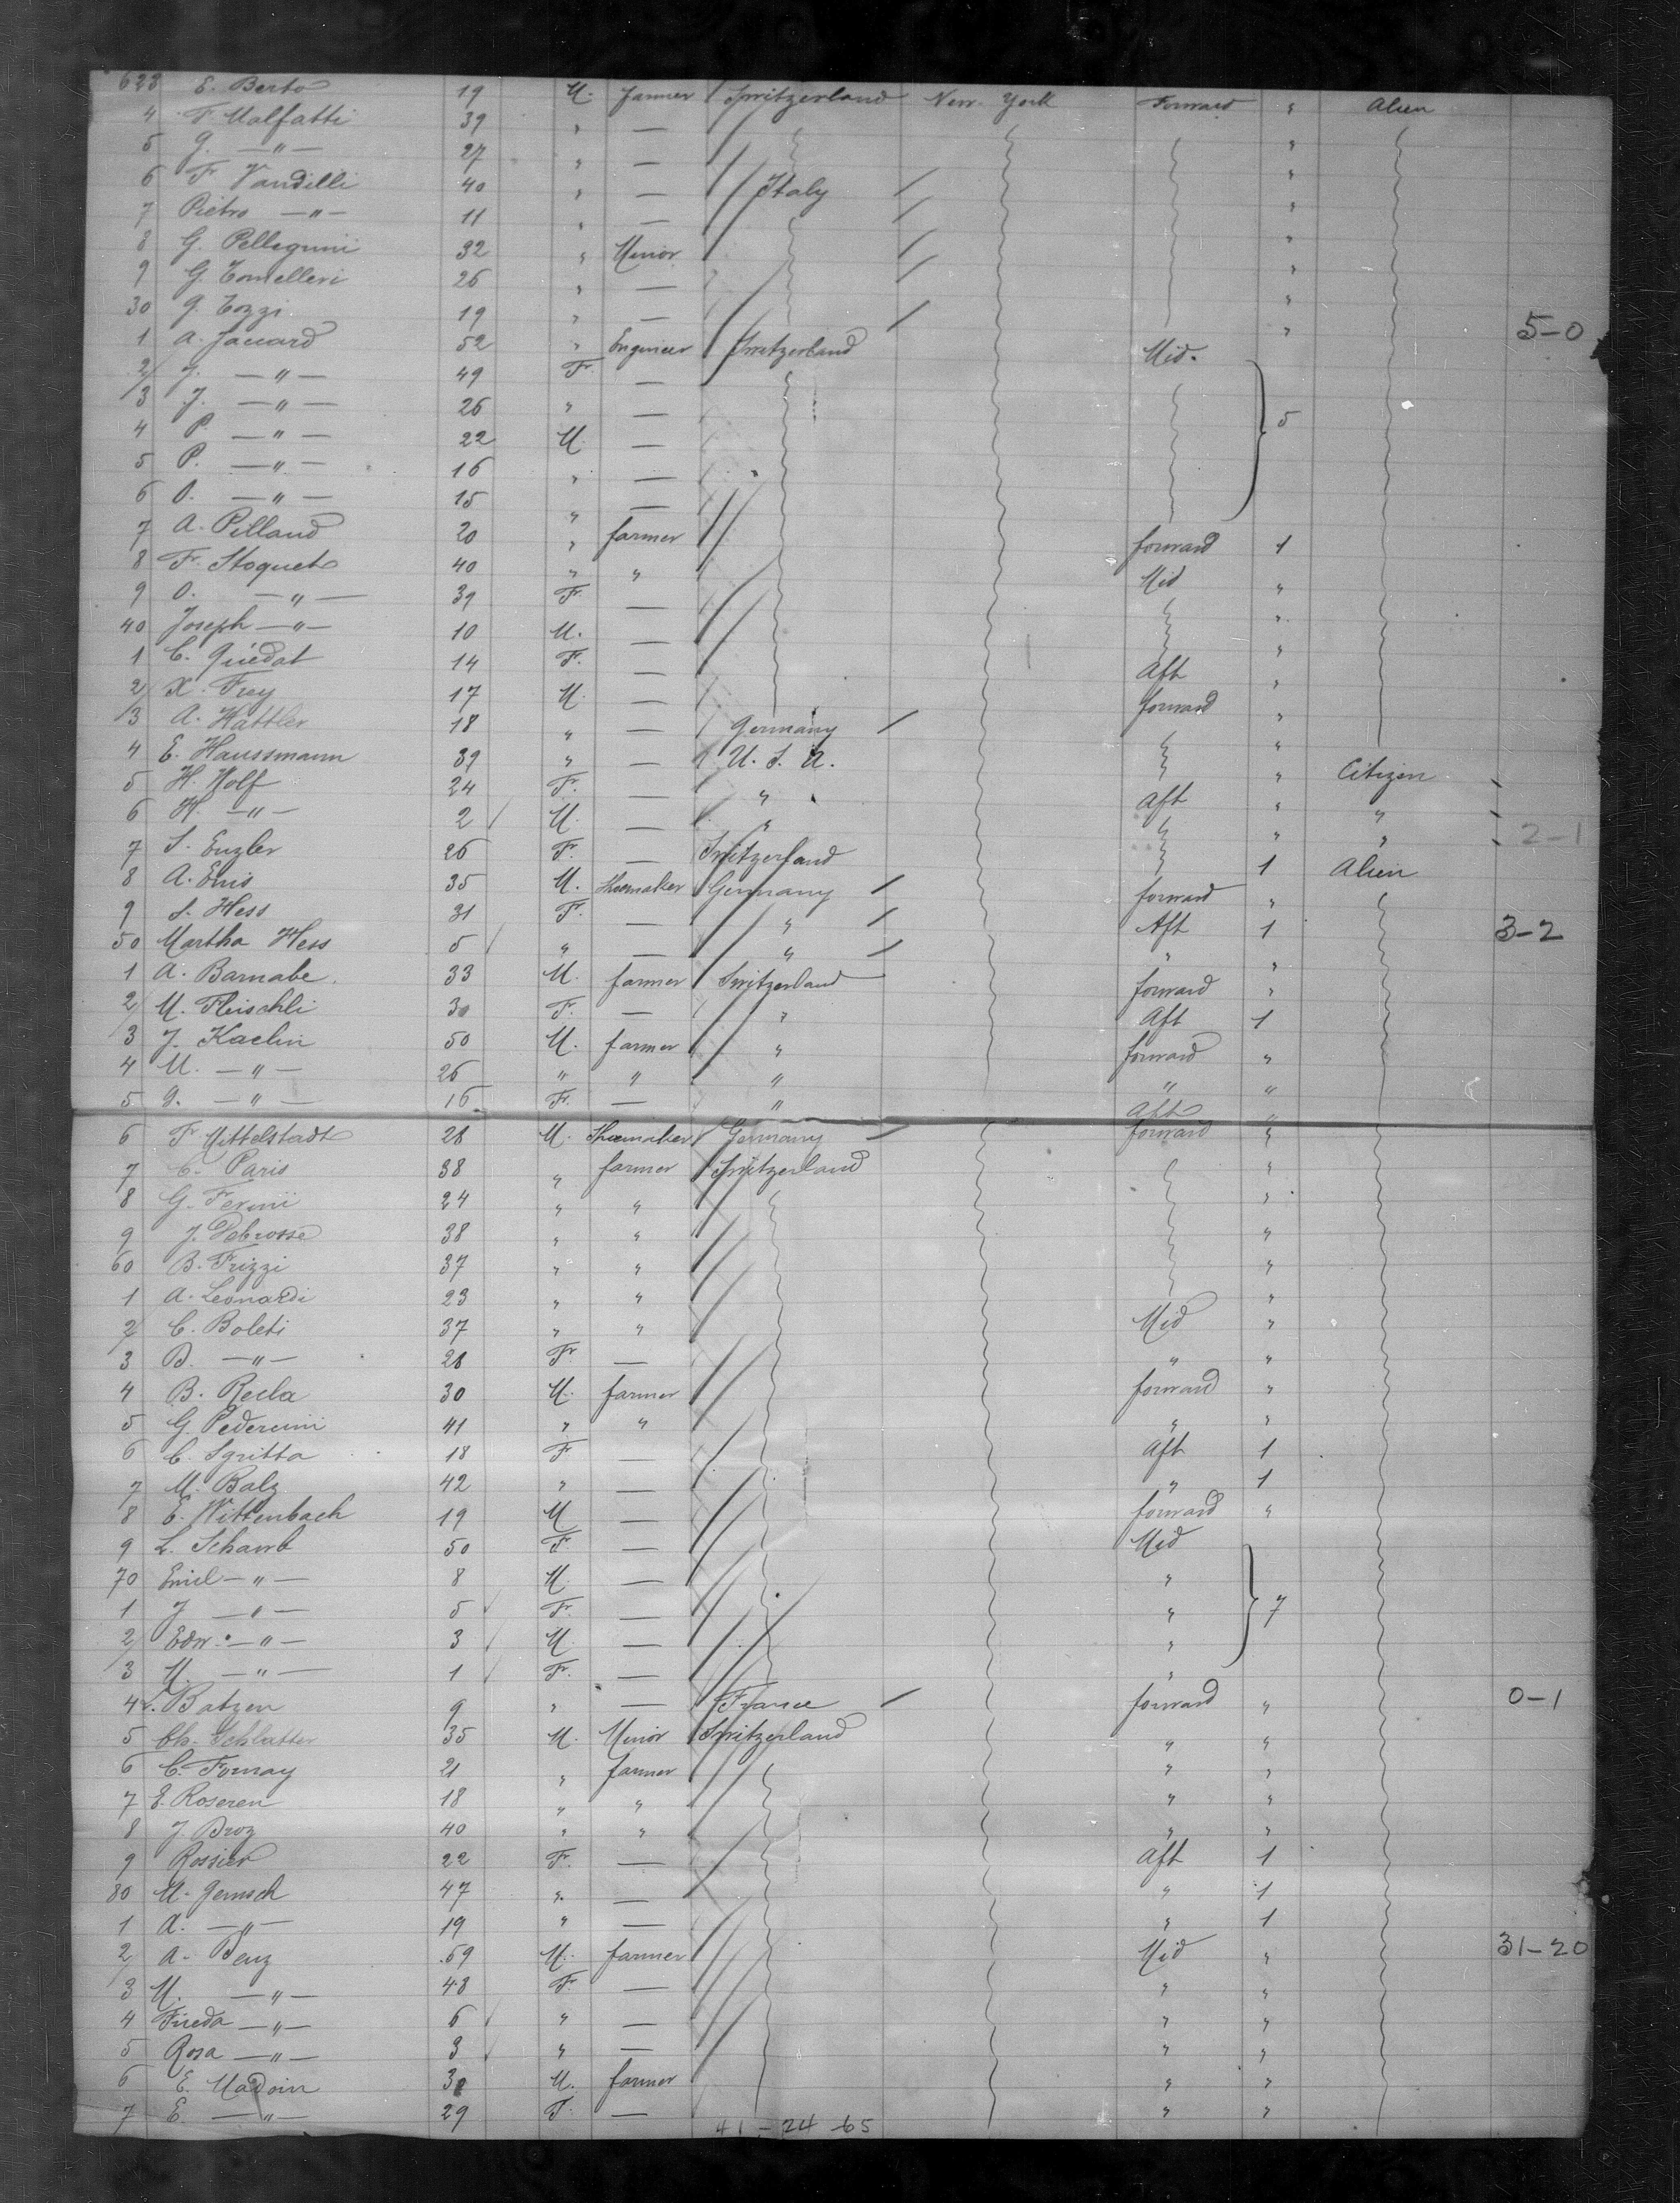 623 E. Berto 19 M. farmer Switzerland New York Forward " Alien
4 F Malfatti 39 " —
5 G. —"— 27 " — "
6 F Vandilli 40 " — Italy "
7 Pietro —"— 11 " — "
8 G. Pellegrini 32 " Minor "
9 G. Tomelleri 26 " — "
30 G. Tozzi 19 " — " 5-0
1 A. Jaccard 52 " Engineer Switzerland Mid.
2 J. —"— 49 F. —
3 J. —"— 26 " — 5
4 P. —"— 22 M —
5 P. —"— 16 " —
6 O. —"— 15 " —
7 A. Pilland 20 " farmer forward 1
8 F. Stoquet 40 " " Mid "
9 O. —"— 39 F. — "
40 Joseph —"— 10 M. — "
1 C. Quedat 14 F. — Aft "
2 X. Frey 17 M. — forward "
3 A. Hattler 18 " — Germany "
4 E. Haussmann 39 " — U. S. A. " Citizen
5 H. Wolf 24 F. — " Aft " "
6 H. —"— 2 M. — " " " 2-1
7 S. Enzler 26 F. — Switzerland 1 Alien
8 A. Enis 35 M. Shoemaker Germany forward "
9 S. Hess 31 F. — " Aft 1 3-2
50 Martha Hess 5 " — " " "
1 A. Barnabe 33 M. farmer Switzerland forward "
2 M. Fleischli 30 F. — " Aft 1
3 J. Kaelin 50 M. farmer " forward "
4 M. —"— 26 " " " " "
5 G. —"— 16 F. — " aft "
6 F Mittelstadt 28 M. Shoemaker Germany forward "
7 C. Paris 38 " farmer Switzerland "
8 G. Ferrini 24 " " "
9 J. Debrosse 38 " " "
60 B. Frizzi 37 " " "
1 A. Leonardi 23 " " "
2 C. Boleti 37 " " Mid "
3 B. —"— 28 F. — " "
4 B. Recla 30 M. farmer forward "
5 G. Pedercini 41 " " " "
6 C. Sgritta 18 F — aft 1
7 M. Balz 42 " — " 1
8 E. Wittenbach 19 M — forward "
9 L. Schaub 50 F — Mid
70 Emil —"— 8 M — "
1 J —"— 5 F. — " 7
2 Edw. —"— 3 M — "
3 M —"— 1 F. — "
4 L. Batzen 9 " — France forward " 0-1
5 Ch. Schlatter 35 M. Minor Switzerland " "
6 C. Fornay 21 " farmer " "
7 E. Roseren 18 " " " "
8 J. Droz 40 " " " "
9 Rossier 22 F. — aft 1
80 M. Jemsch 47 " — " 1
1 A. —"— 19 " — " 1
2 A. Benz 69 M. farmer Mid " 31-20
3 M. —"— 43 F. — " "
4 Frieda —"— 6 " — " "
5 Rosa —"— 3 " — " "
6 E. Madoin 30 M. farmer " "
7 E. —"— 29 F. — " "
41-24-65